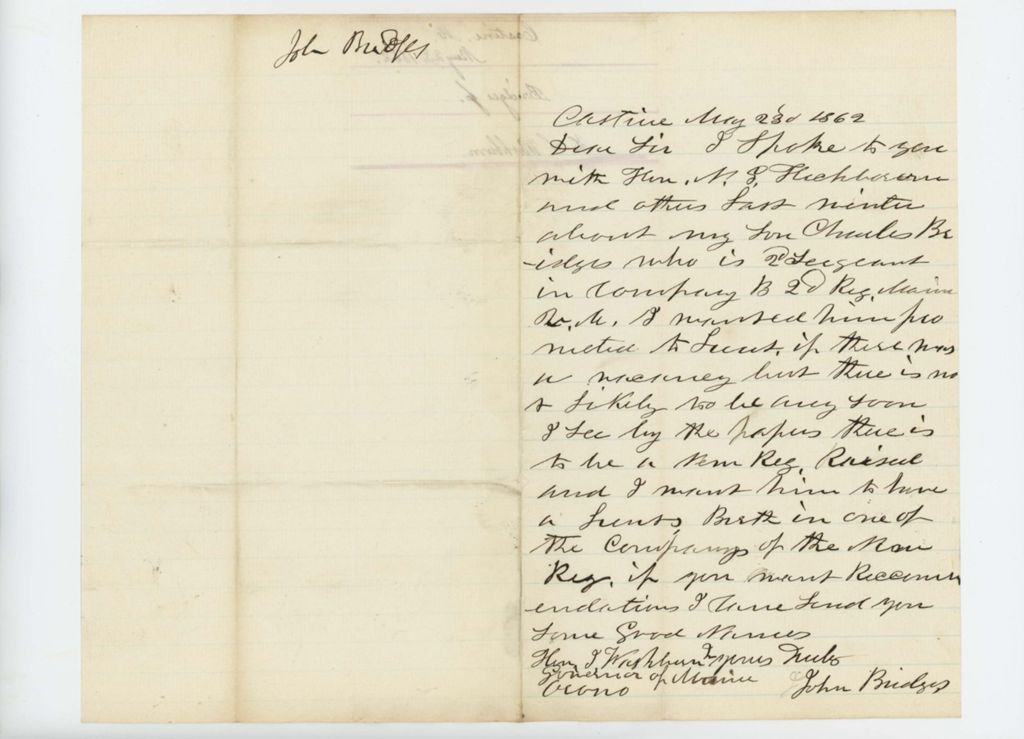 John Bridges
Castine May 23d 1862
Dear Sir I Spoke to you
with Hon. N. G. Hichborn
and others Last winter
about my Son Charles Br
-idges who is 2d Sergeant
in Company B 2d Reg. Maine
V. M. I wanted him pro
moted to Lieut. if there was
a vacancy but there is no
t Likely to be any Soon
I See by the papers there is
to be a New Reg. Raised
and I want him to have
a Lieuts Birth in one of
the Companys of the New
Reg. if you want Reccomm
endations I Can Send you
Some Good Names
Hon. I. Washburn Jr yours Truly
Governor of Maine
Orono John Bridges
Castine, May 23
Bridges J.
Washburn